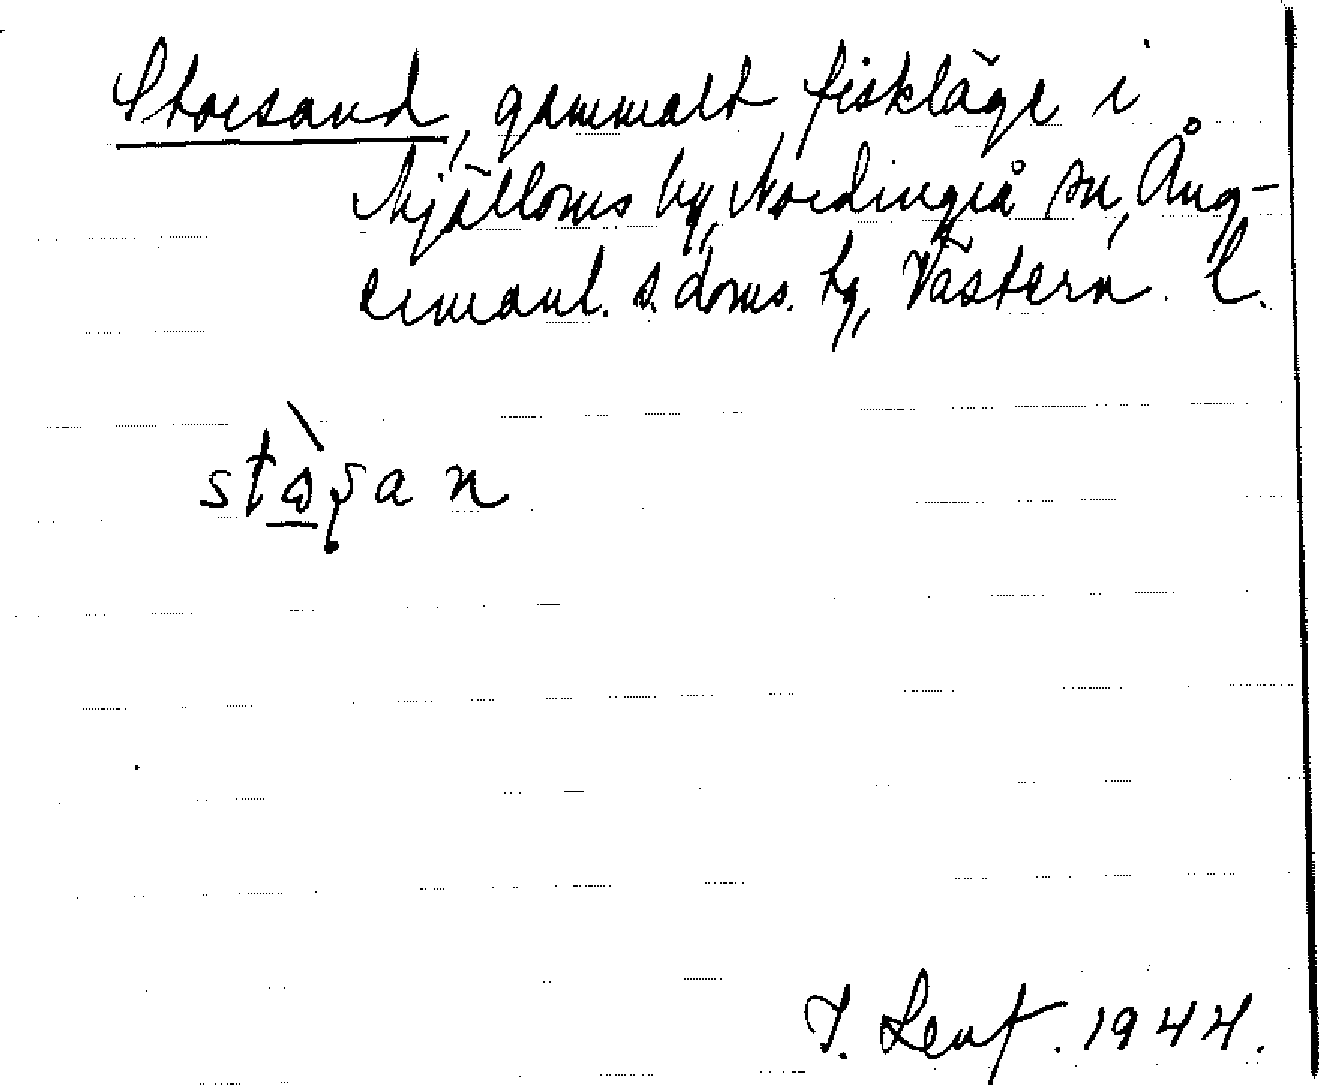 Storsand, gammalt fiskläge i
Mjälloms by, Nordingrå sn, Ång-
ermanl. s. doms. hg, Västern. l.
J. Lenf. 1944.